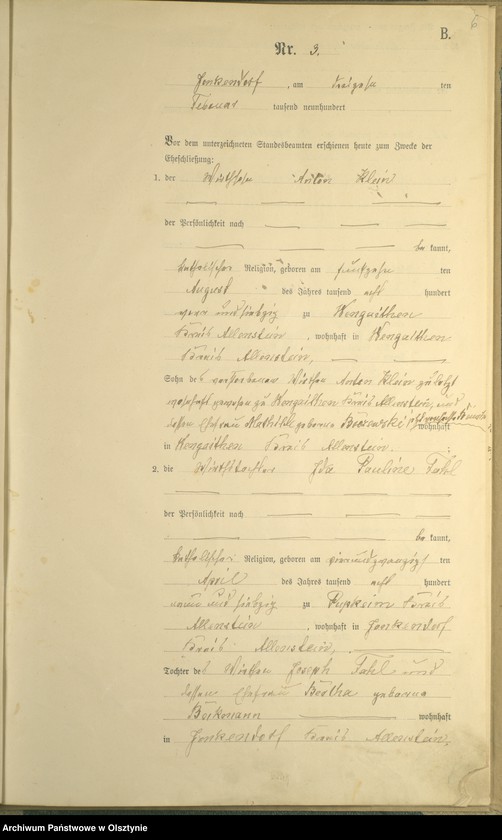 6
B.
Nr. 3.
Jonkendorf, am dreizehn ten
Februar tausend neunhundert
Vor dem unterzeichneten Standesbeamten erschienen heute zum Zwecke der
Eheschließung:
1. der Wirthssohn Anton Klein
der Persönlichkeit nach
be kannt,
katholischer Religion, geboren am fünfzehn ten
August des Jahres tausend acht hundert
und siebzig zu Wengaithen
Kreis Allenstein, wohnhaft in Wengaithen
Kreis Allenstein,
Sohn des verstorbenen Wirthen Anton Klein zuletzt
wohnhaft gewesen zu Wengaithen Kreis Allenstein, und
dessen Ehefrau Mathilde geborene jetzt
wohnhaft
in Wengaithen Kreis Allenstein.
2. die Wirthstochter Ida Pauline Fahl
der Persönlichkeit nach
be kannt,
katholischer Religion, geboren am vierundzwanzig ten
April des Jahres tausend acht hundert
neun und siebzig zu Pupkeim Kreis
Allenstein, wohnhaft in Jonkendorf
Kreis Allenstein,
Tochter des Wirthen Joseph Fahl und
dessen Ehefrau Bertha geborene
Borkmann wohnhaft
in Jonkendorf Kreis Allenstein.
Archiwum Państwowe w Olsztynie